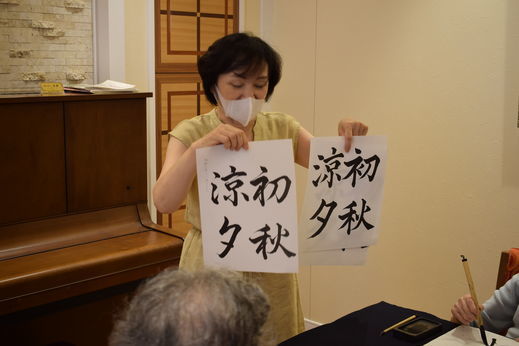 初秋
涼夕
初秋
涼夕